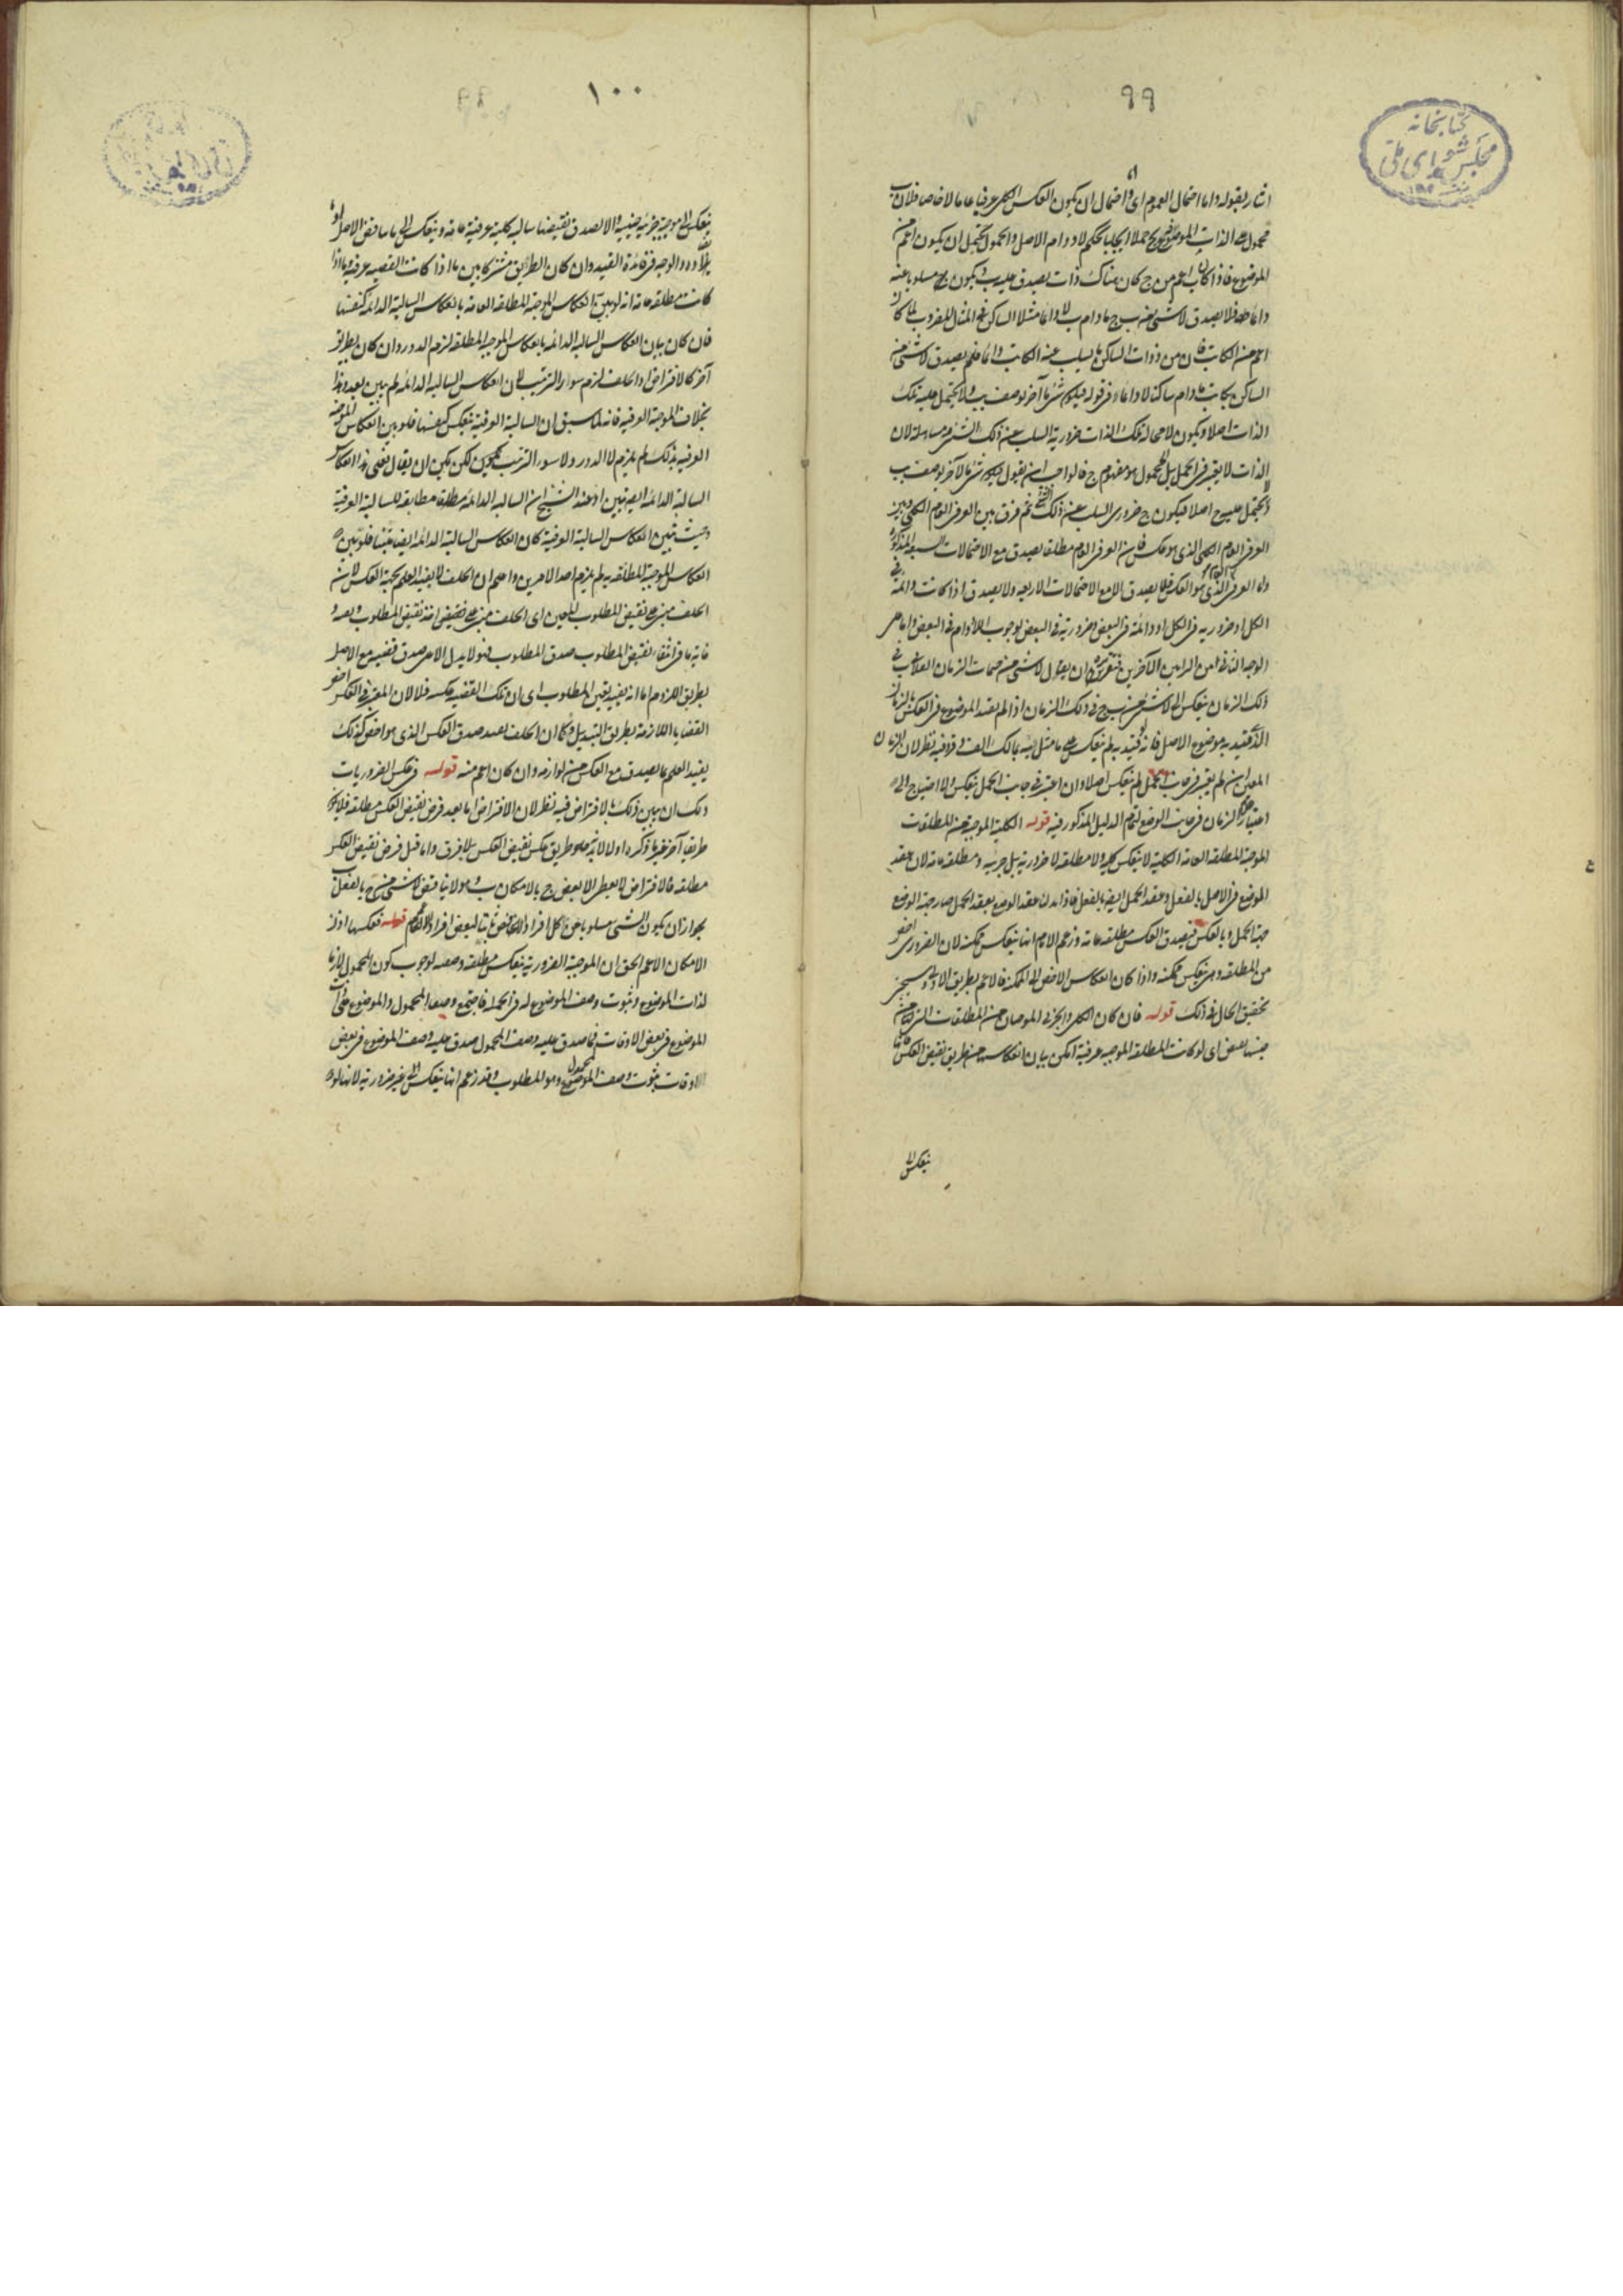 ٩٩
كتابخانه
مجلس شورای ملی
اشار بقوله واما احتمال العموم ای واحتمال ان يكون العكس الكلی عرفيا عاما لا خاصا فلان ب
محمول على الذات الموضوع بج حملا ايجابيا بحكم لا دوام الاصل والمحمول يحتمل ان يكون اعم من
الموضوع فاذا كان ب اعم من ج كان هناك ذات يصدق عليه ب ويكون ج مسلوبا عنه
دائما فلا يصدق لا شیء من ب ج ما دام ب لا دائما مثلا الساكن فی المثال المضروب لما كان
اعم من الكاتب فان من ذوات الساكن ما يسلب عنه الكاتب دائما فلم يصدق لا شیء من
الساكن بكاتب ما دام ساكنا لا دائما وفی قوله فيكون شیء ما آخر يوصف بب ولا يحتمل عليه تلك
الذات اصلا ويكون لا محالة تلك الذات ضرورية السلب عن ذلك الشیء مساهلة لان
الذات لا يعتبر فی الحمل بل المحمول هو مفهوم ج فالواجب ان يقول فيكون شیء ما آخر يوصف بب
ولا يحتمل عليه ج اصلا فيكون ج ضروری السلب عن ذلك الشیء ثم فرق بين العرفی العام الكلی وبين
العرفی العام الكلی الذی هو عكس فان العرفی العام مطلقا يصدق مع الاحتمالات السبعة المذكورة
واما العرفی العام الذی هو العكس فلا يصدق الا مع الاحتمالات الاربعة ولا يصدق اذا كانت دائمة فی
الكل او ضرورية فی الكل او دائمة فی البعض وضرورية فی البعض لوجوب اللادوام فی البعض واما
الوجه الثانی من الرأيين الآخرين فتقريره ان يقول لا شیء من ج مات الزمان الفلانی ب فی
ذلك الزمان ينعكس الى لا شیء من ب ج فی ذلك الزمان اذا لم يقيد الموضوع فی العكس بالزمان
الذی قيد به موضوع الاصل فانه لو قيد به لم ينعكس على ما مثل به مالك الف وقر فيه نظر لان الزمان
المعين ان لم يعتبر فی جانب الحمل لم ينعكس اصلا وان اعتبر فی جانب الحمل ينعكس ولا احتياج الى
اعتبار الزمان فی جانب الوضع لتمام الدليل المذكور فيه قوله الكلية الموجبة من المطلقات
الموجبة المطلقة العامة الكلية لا ينعكس كلية ولا مطلقة لا ضرورية بل جزئية ومطلقة عامة لان عقد
الوضع فی الاصل بالفعل وعقد الحمل ايضا بالفعل فاذا بدلنا عقد الوضع بعقد الحمل صار جهة الوضع
جهة الحمل وبالعكس فيصدق العكس مطلقة عامة وزعم الامام انها ينعكس ممكنة لان الضروری اخص
من المطلقة وهی ينعكس ممكنة واذا كان انعكاس الاخص الى الممكنة فالاعم بطريق الاولى وسيجیء
تحقيق الحال فی ذلك قوله فان كان الكلی والجزئی الموجبان من المطلقات التی لها من
جنسها نقيض ای لو كانت المطلقة الموجبة عرفية امكن بيان انعكاسها من طريق نقيض العكس فانها
ينعكس الى
١٠٠
ينعكس الى موجبة جزئية حينية والا لصدق نقيضها سالبة كلية عرفية عامة وينعكس الى ما يناقض الاصل او
يضاده والوجه فی فائدة القيد وان كان الطريق مشتركا بين ما اذا كانت القضية عرفية وما اذا
كانت مطلقة عامة انه لو بين انعكاس الموجبة المطلقة العامة بانعكاس السالبة الدائمة كنفسها
فان كان بيان انعكاس السالبة الدائمة بانعكاس الموجبة المطلقة لزم الدور وان كان بطريق
آخر كالافتراض او الخلف لزم سوء الترتيب لان انعكاس السالبة الدائمة لم يبين بعد وهذا
بخلاف الموجبة العرفية فانه لما سبق ان السالبة العرفية ينعكس كنفسها فلو بين انعكاس الموجبة
العرفية بذلك لم يلزم لا الدور ولا سوء الترتيب لكن يمكن ان يقال نعنی بهذا انعكاس
السالبة الدائمة ايضا تبين اذ عند الشيخ ان السالبة الدائمة مطلقة مطابقة للسالبة العرفية
وحيث تبين انعكاس السالبة العرفية كان انعكاس السالبة الدائمة ايضا مبينا فلو بين
انعكاس الموجبة المطلقة به لم يلزم احد الامرين واعلم ان الخلف لا يفيد العلم بجهة العكس لان
الخلف مبنی على نقيض المطلوب المعين ای الخلف مبنی على اخذ نقيض المطلوب وبعده
غاية ما فی انتفاء نقيض المطلوب صدق المطلوب فهو لا يدل الا على صدق قضية مع الاصل
بطريق اللزوم اما انه يفيد تعيين المطلوب ای ان تلك القضية عكسه فلا لان المعتبر فی العكس اخص
القضايا اللازمة بطريق التبديل وكما ان الخلف يفيد صدق العكس الذی هو اخص كذلك
يفيد العلم بما يصدق مع العكس من لوازمه وان كان اعم منه قوله فی عكس الضروريات
ولك ان يبين ذلك بالافتراض فيه نظر لان الافتراض اما بعد فرض نقيض العكس مطلقة فلا يكون
طريقا آخر غير ما ذكره اولا لانه هو طريق عكس نقيض العكس بلا فرق واما قبل فرض نقيض العكس
مطلقة فالافتراض لا يعطی الا بعض ج بالامكان ب وهو لا يناقض لا شیء من ج ب بالفعل
لجواز ان يكون الشیء مسلوبا عن كل افراد الآخر ثابتا لبعض افراده بالامكان قوله فعكسها اذن
الامكان الاعم الحق ان الموجبة الضرورية ينعكس مطلقة وصفية لوجوب كون المحمول لازما
لذات الموضوع وثبوت وصف الموضوع له فی الجملة فاجتمع وصفا المحمول والموضوع على ذات
الموضوع فی بعض الاوقات فما صدق عليه وصف المحمول صدق عليه وصف الموضوع فی بعض
اوقات ثبوت وصف المحمول وهو المطلوب وقد زعم انها ينعكس الى غير ضرورية لانها لو